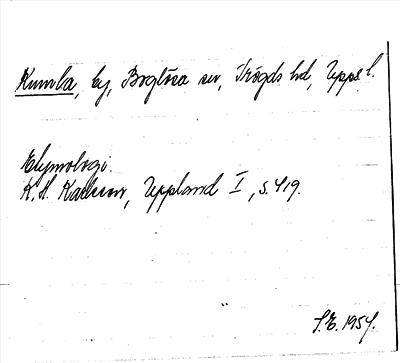 Kumla, by, Boglösa sn, Trögds hd, Upps. l.
Etymologi.
K. H. Karlsson, Uppland I, s. 419.
S.E. 1954.